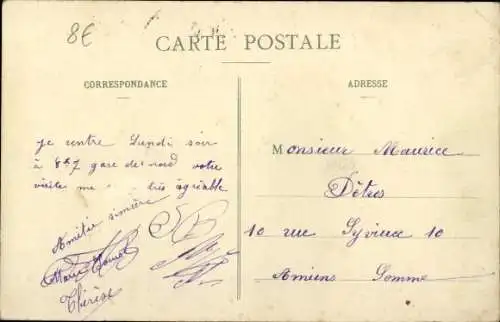 8€
CARTE POSTALE
CORRESPONDANCE
ADRESSE
je rentre Lundi soir
à 8h7 gare de nord votre
visite me très agréable
Amitié sincère
Marie
Thérèse
Monsieur Maurice
Détres
10 rue Syvieux 10
Amiens Somme